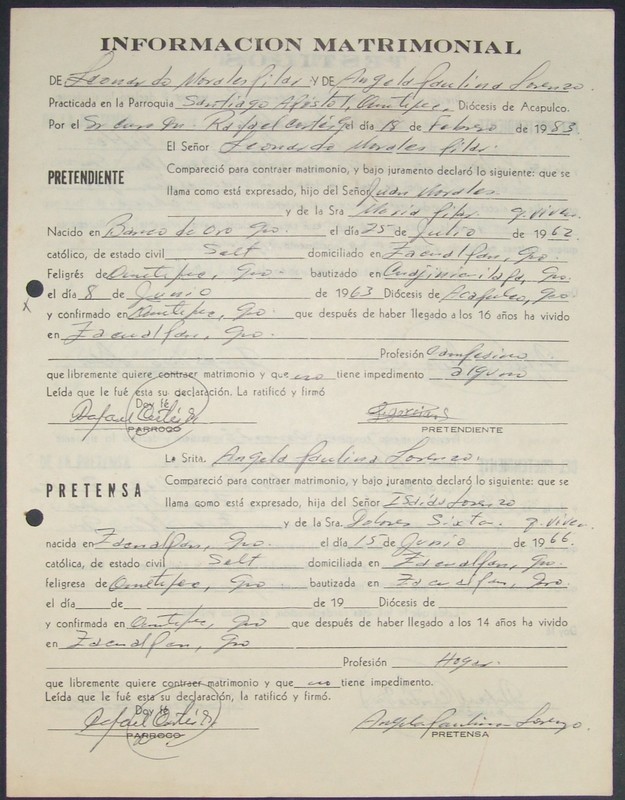 INFORMACION MATRIMONIAL
DE Leonardo Morales Pilar Y DE Angela Paulina Lorenzo.
Practicada en la Parroquia Santiago Apóstol, Ometepec, Diócesis de Acapulco.
Por el Sr cura Dn. Rafael Cortés G el día 18 de Febrero de 1983
El Señor Leonardo Morales Pilar.
PRETENDIENTE
Compareció para contraer matrimonio, y bajo juramento declaró lo siguiente: que se
llama como está expresado, hijo del Señor Juan Morales
y de la Sra Maria Pilar q. viven
Nacido en Barrio de Oro Gro. el día 25 de Julio de 1962
católico, de estado civil Solt domiciliado en Zacualpan, Gro.
Feligrés de Ometepec, Gro. bautizado en Cuajinicuilapa, Gro.
el día 8 de Junio de 1963 Diócesis de Acapulco, Gro.
y confirmado en Ometepec, Gro que después de haber llegado a los 16 años ha vivido
en Zacualpan, Gro.
Profesión Campesino
que libremente quiere contraer matrimonio y que no tiene impedimento alguno
Leída que le fué esta su declaración. La ratificó y firmó
Doy fé
Rafael Cortés G
PARROCO
PRETENDIENTE
La Srita. Angela Paulina Lorenzo.
PRETENSA
Compareció para contraer matrimonio, y bajo juramento declaró lo siguiente: que se
llama como está expresado, hija del Señor Isaido Lorenzo
y de la Sra. Dolores Sixta. q. viven
nacida en Zacualpan, Gro. el día 15 de Junio de 1966.
católica, de estado civil Solt domiciliada en Zacualpan, Gro.
feligresa de Ometepec, Gro bautizada en Zacualpan, Gro.
el día de de 19 Diócesis de
y confirmada en Ometepec, Gro que después de haber llegado a los 14 años ha vivido
en Zacualpan, Gro
Profesión Hogar
que libremente quiere contraer matrimonio y que no tiene impedimento.
Leída que le fué esta su declaración, la ratificó y firmó.
Doy fé
Rafael Cortés G
PARROCO
Angela Paulina Lorenzo.
PRETENSA